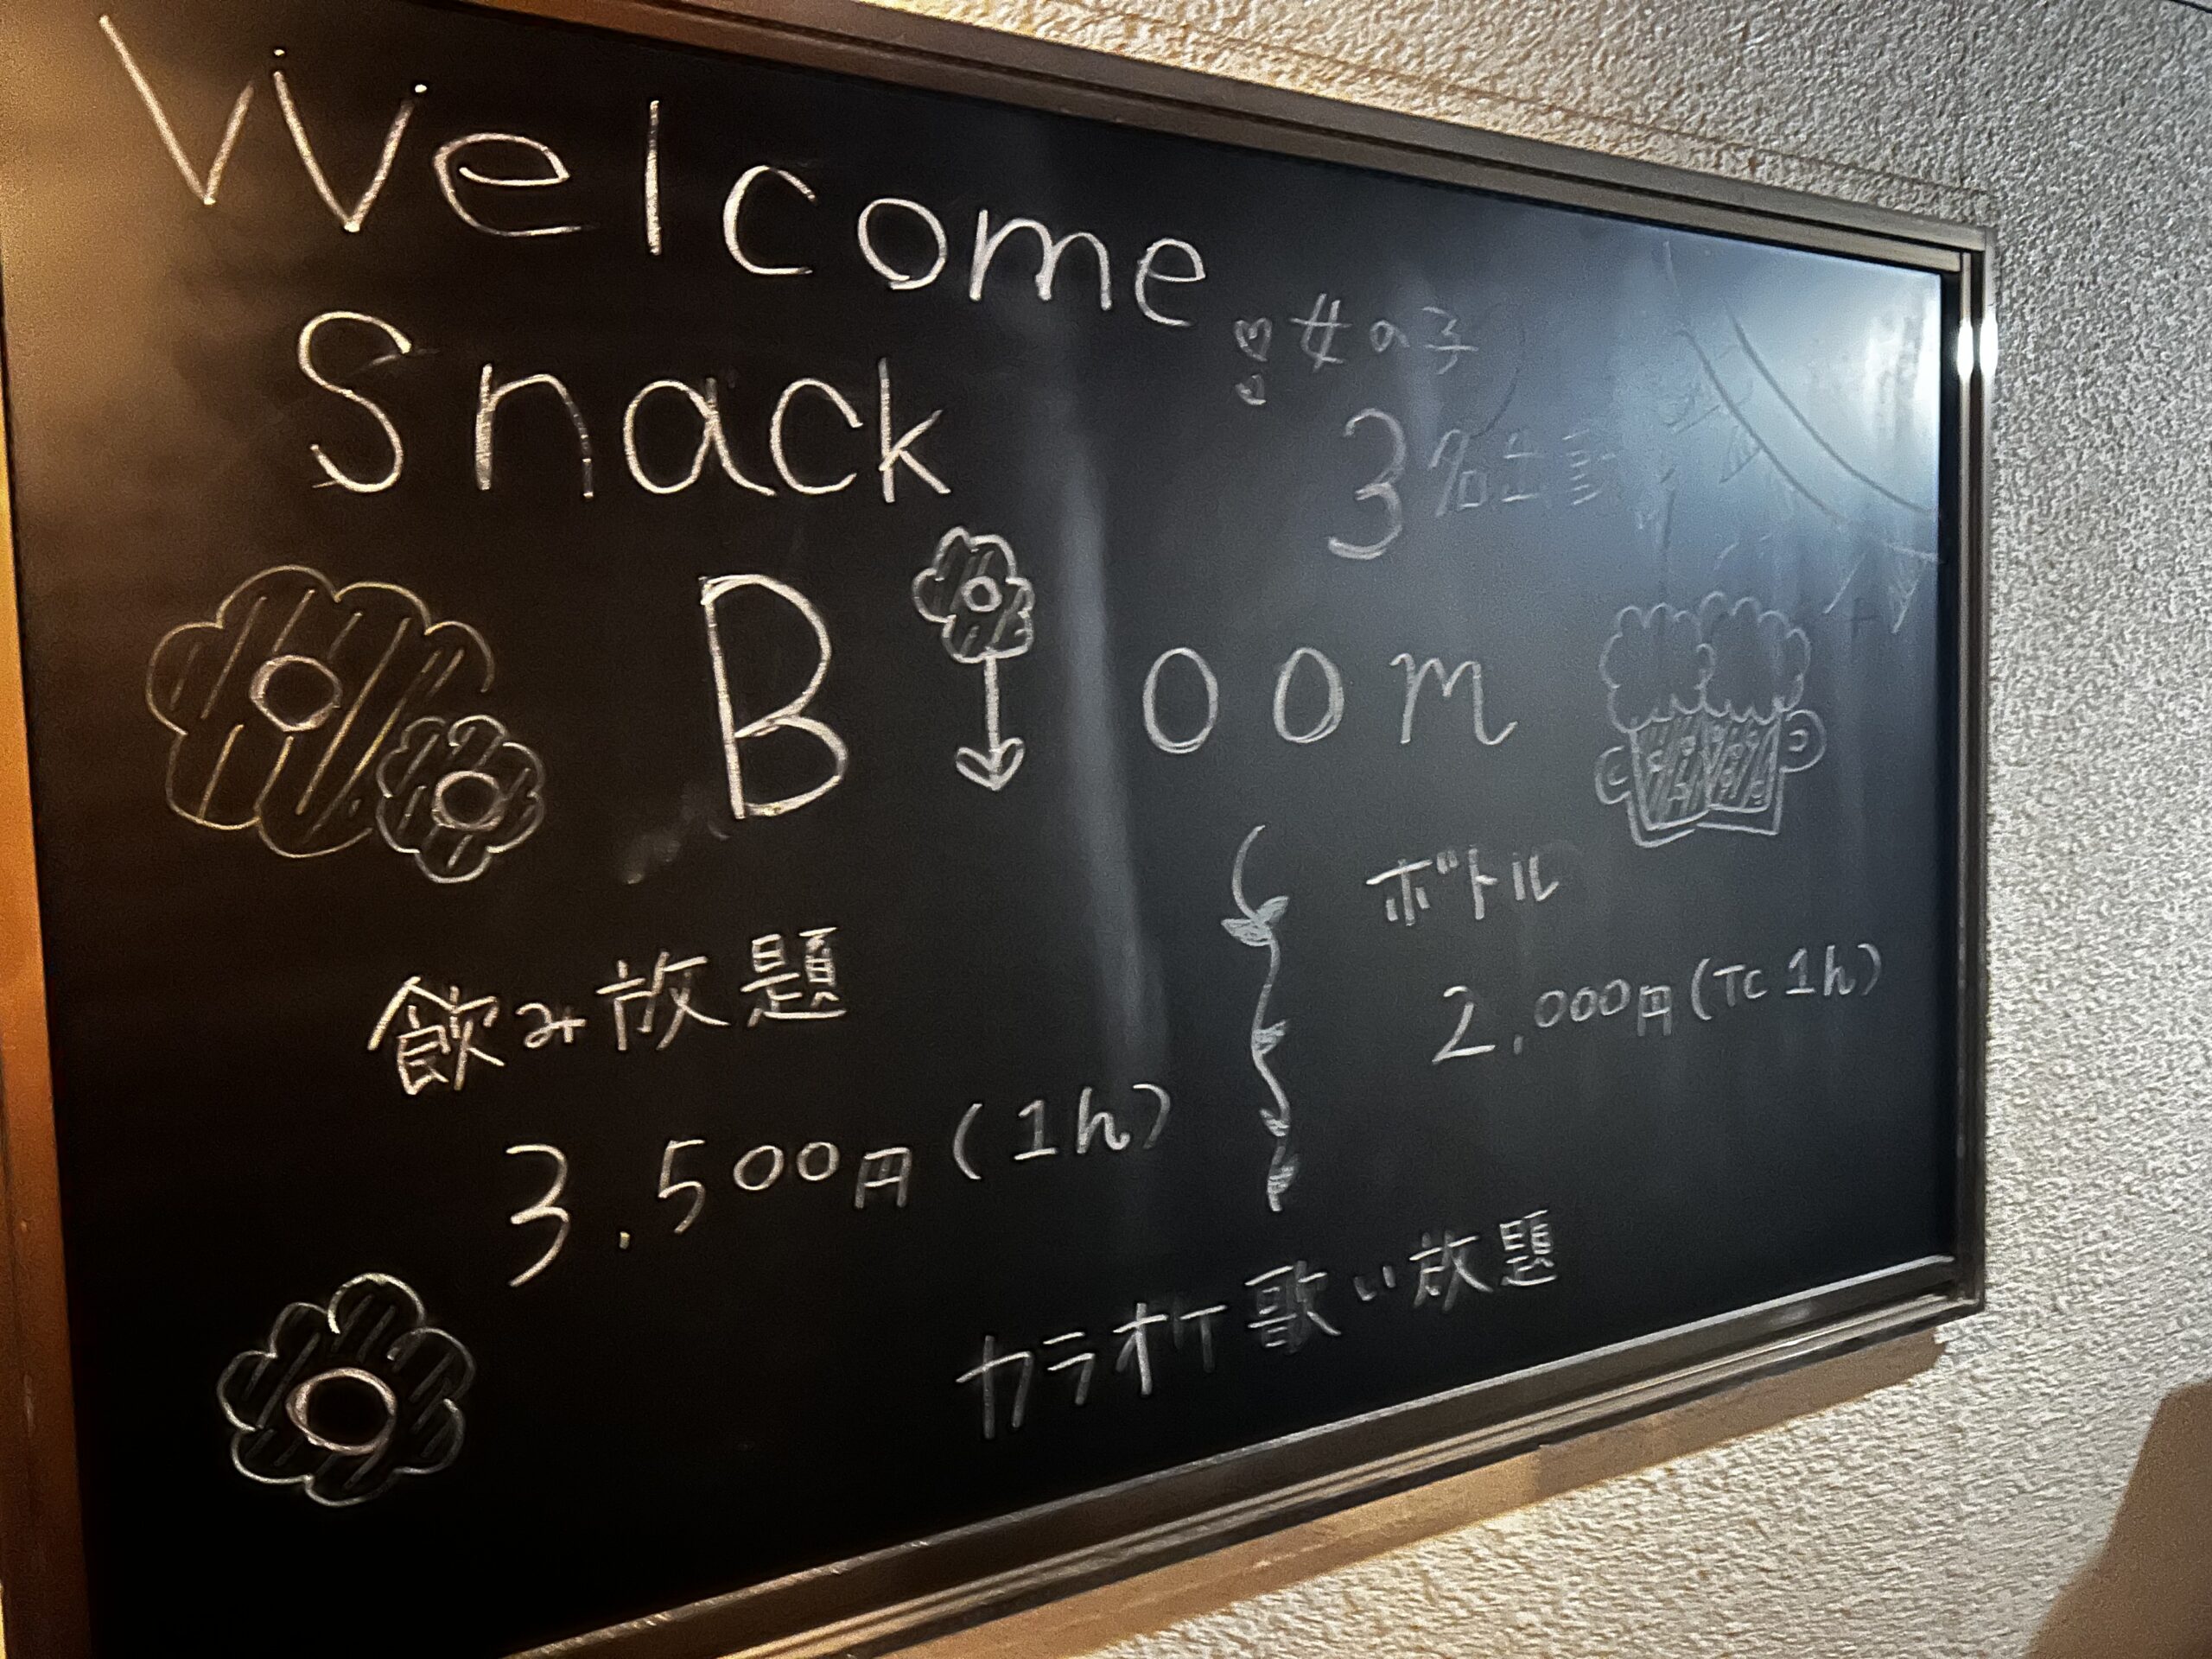 Welcome
Snack
Bloom
女の子
3名出勤
飲み放題
3.500円(1h)
ボトル
2.000円(TC 1h)
カラオケ歌い放題